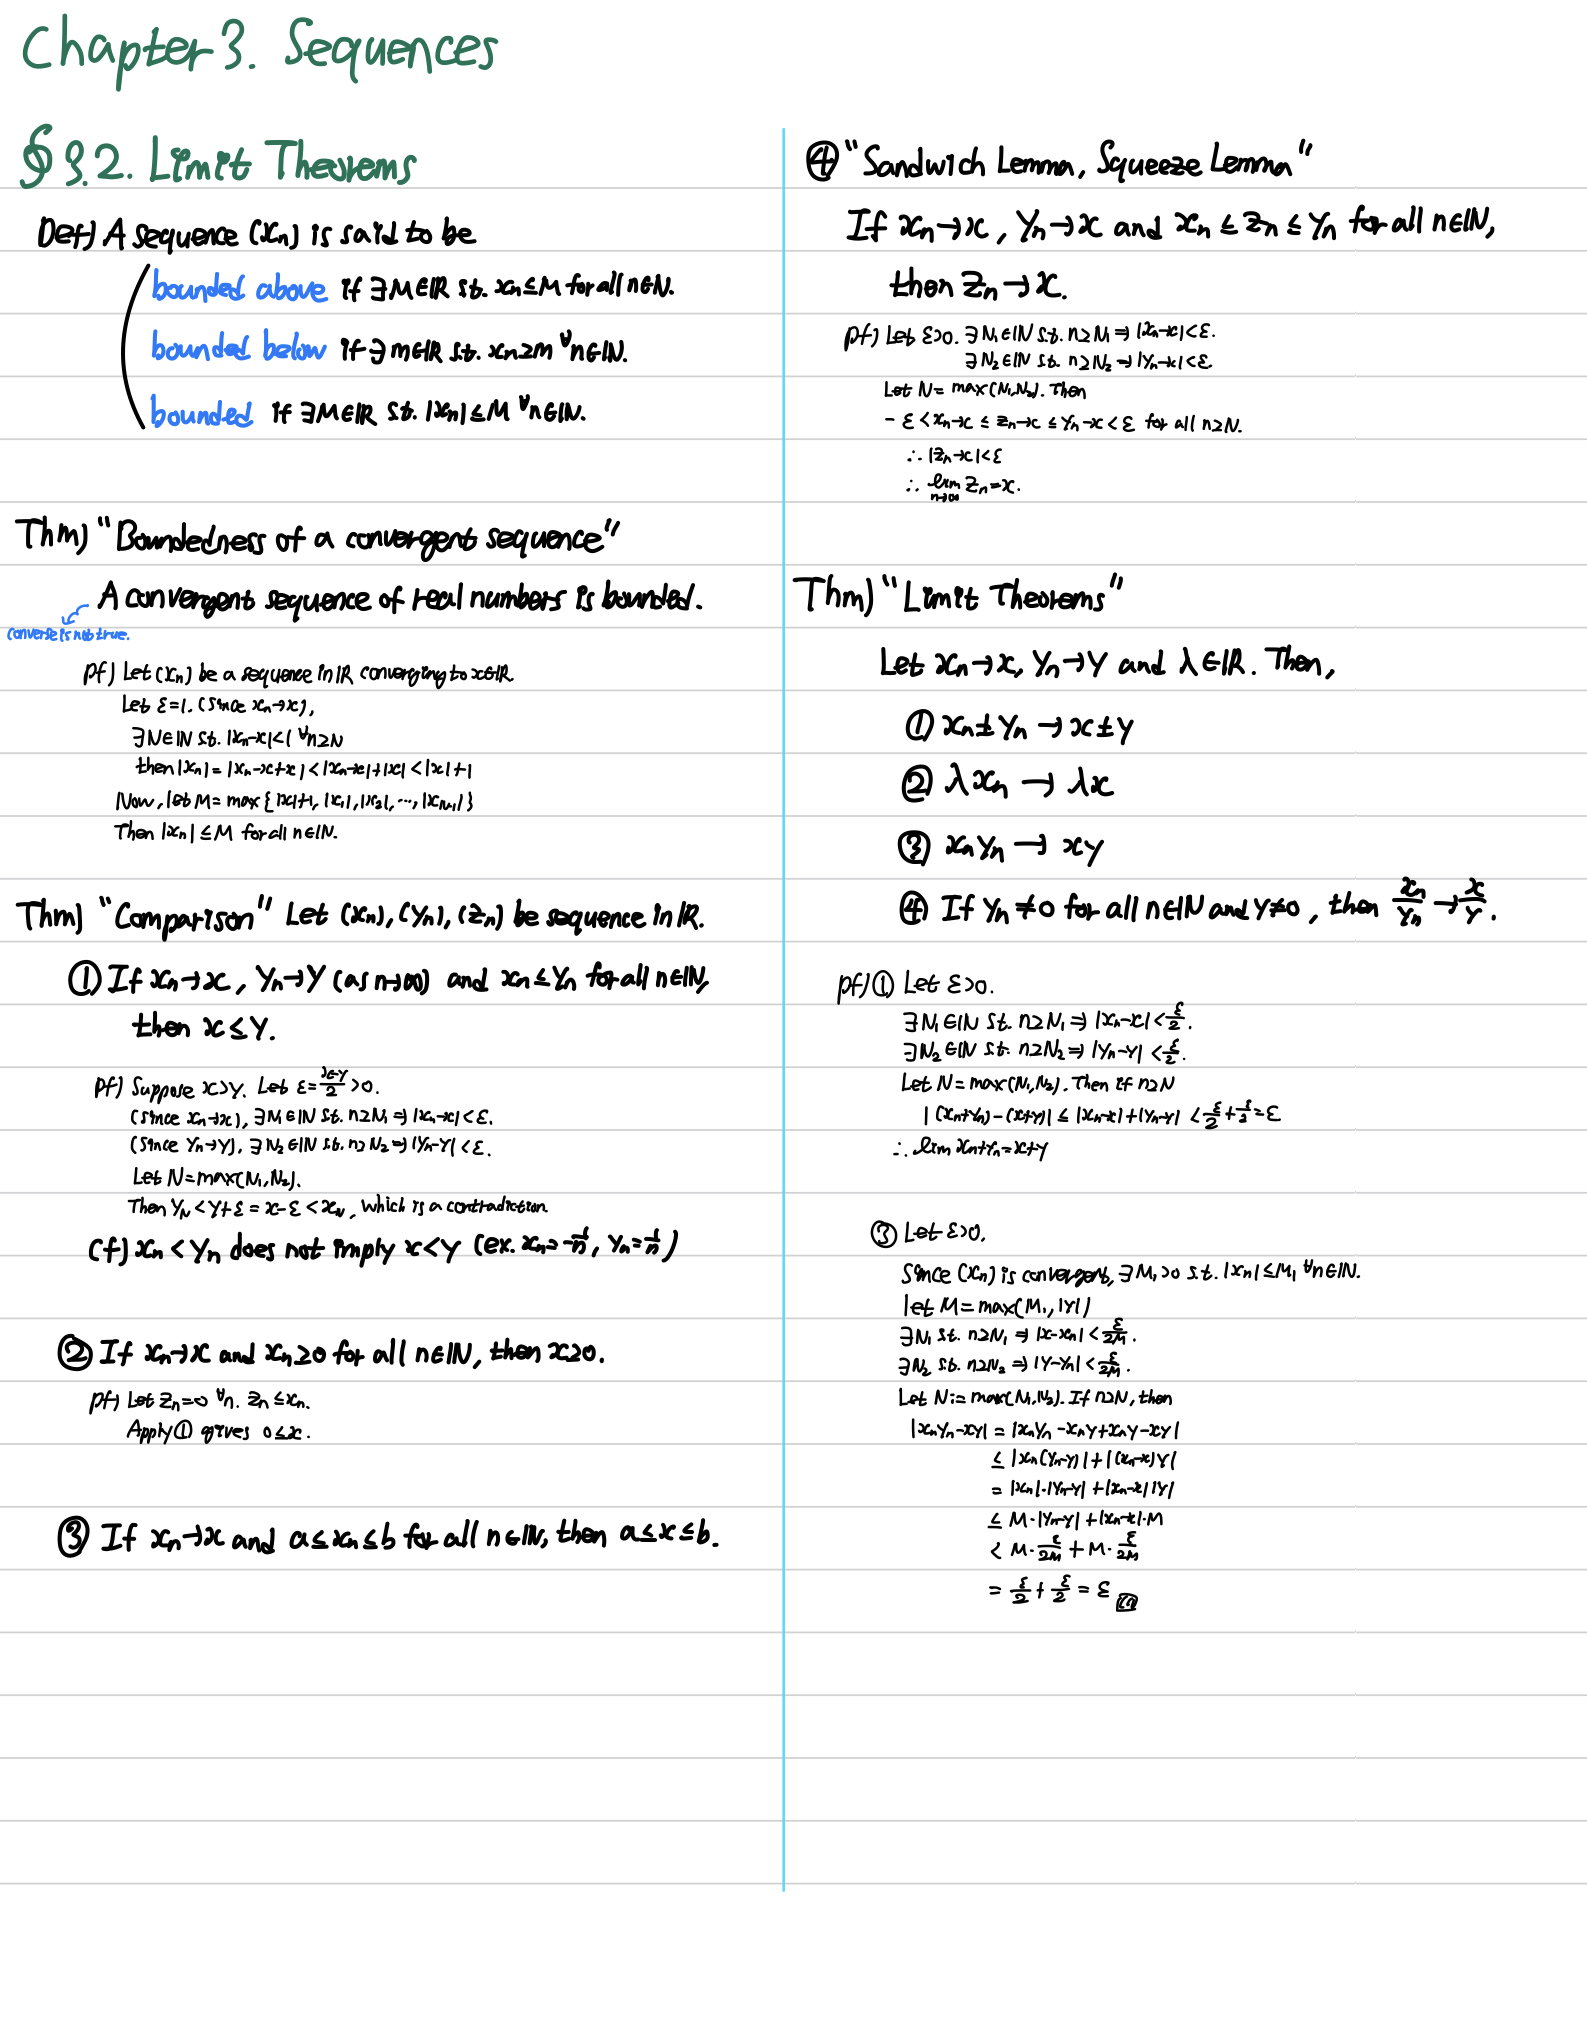 Chapter 3. Sequences
§ 3.2. Limit Theorems
Def) A sequence (xn) is said to be
bounded above if ∃M∈ℝ s.t. xn ≤ M for all n∈ℕ.
bounded below if ∃m∈ℝ s.t. xn ≥ m ∀n∈ℕ.
bounded if ∃M∈ℝ s.t. |xn| ≤ M ∀n∈ℕ.
Thm) "Boundedness of a convergent sequence"
A convergent sequence of real numbers is bounded.
converse is not true.
pf) Let (xn) be a sequence in ℝ converging to x∈ℝ.
Let ε=1. (Since xn→x),
∃N∈ℕ s.t. |xn-x|<1 ∀n≥N
then |xn| = |xn-x+x| < |xn-x|+|x| < |x|+1
Now, let M = max{|x|+1, |x1|, |x2|, ..., |xN-1|}
Then |xn| ≤ M for all n∈ℕ.
Thm) "Comparison" Let (xn), (yn), (zn) be sequence in ℝ.
① If xn→x, yn→y (as n→∞) and xn ≤ yn for all n∈ℕ,
then x ≤ y.
pf) Suppose x>y. Let ε = (x-y)/2 > 0.
(Since xn→x), ∃N1∈ℕ s.t. n≥N1 ⇒ |xn-x|<ε.
(Since yn→y), ∃N2∈ℕ s.t. n≥N2 ⇒ |yn-y|<ε.
Let N = max(N1, N2).
Then yN < y+ε = x-ε < xN, which is a contradiction.
cf) xn < yn does not imply x<y (ex. xn = -1/n, yn = 1/n)
② If xn→x and xn ≥ 0 for all n∈ℕ, then x≥0.
pf) Let zn = 0 ∀n. zn ≤ xn.
Apply ① gives 0 ≤ x.
③ If xn→x and a ≤ xn ≤ b for all n∈ℕ, then a ≤ x ≤ b.
④ "Sandwich Lemma, Squeeze Lemma"
If xn→x, yn→x and xn ≤ zn ≤ yn for all n∈ℕ,
then zn→x.
pf) Let ε>0. ∃N1∈ℕ s.t. n≥N1 ⇒ |xn-x|<ε.
∃N2∈ℕ s.t. n≥N2 ⇒ |yn-x|<ε.
Let N = max(N1, N2). Then
-ε < xn-x ≤ zn-x ≤ yn-x < ε for all n≥N.
∴ |zn-x|<ε
∴ lim n→∞ zn = x.
Thm) "Limit Theorems"
Let xn→x, yn→y and λ∈ℝ. Then,
① xn ± yn → x ± y
② λxn → λx
③ xnyn → xy
④ If yn ≠ 0 for all n∈ℕ and y≠0, then xn/yn → x/y.
pf) ① Let ε>0.
∃N1∈ℕ s.t. n≥N1 ⇒ |xn-x| < ε/2.
∃N2∈ℕ s.t. n≥N2 ⇒ |yn-y| < ε/2.
Let N = max(N1, N2). Then if n≥N
|(xn+yn)-(x+y)| ≤ |xn-x|+|yn-y| < ε/2 + ε/2 = ε
∴ lim xn+yn = x+y
③ Let ε>0.
Since (xn) is convergent, ∃M1>0 s.t. |xn| ≤ M1 ∀n∈ℕ.
let M = max(M1, |y|)
∃N1 s.t. n≥N1 ⇒ |x-xn| < ε/2M.
∃N2 s.t. n≥N2 ⇒ |y-yn| < ε/2M.
Let N := max(N1, N2). If n≥N, then
|xnyn-xy| = |xnyn - xny + xny - xy|
≤ |xn(yn-y)| + |(xn-x)y|
= |xn|·|yn-y| + |xn-x||y|
≤ M·|yn-y| + |xn-x|·M
< M·ε/2M + M·ε/2M
= ε/2 + ε/2 = ε